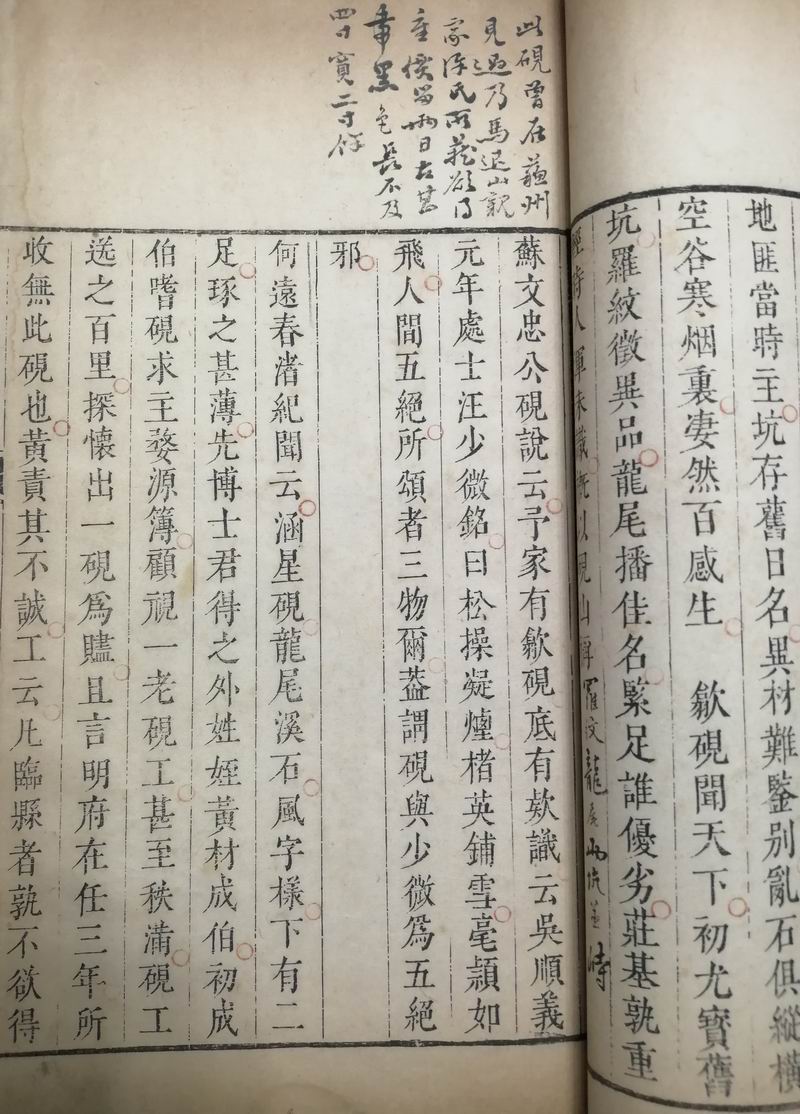 地匪當時主坑存舊日名異材難鑒別亂石俱縱橫
空谷寒烟裏凄然百感生　歙硯聞天下初尤寶舊
坑羅紋徵異品龍尾播佳名緊足誰優劣莊基孰重
此硯曾在蘇州
見過乃馬退山
家許氏所藏欲得
重價留兩日古甚
色長不及
四寸寬二寸餘
蘇文忠公硯說云予家有歙硯底有欵識云吳順義
元年處士汪少微銘曰松操凝煙楮英鋪雪毫頴如
飛人間五絕所頌者三物爾葢謂硯與少微爲五絕
邪
何遠春渚紀聞云涵星硯龍尾溪石風字樣下有二
足琢之甚薄先博士君得之外姓姪黃材成伯初成
伯嗜硯求主婺源簿顧視一老硯工甚至秩滿硯工
送之百里探懷出一硯爲贐且言明府在任三年所
收無此硯也黃責其不誠工云凡臨縣者孰不欲得